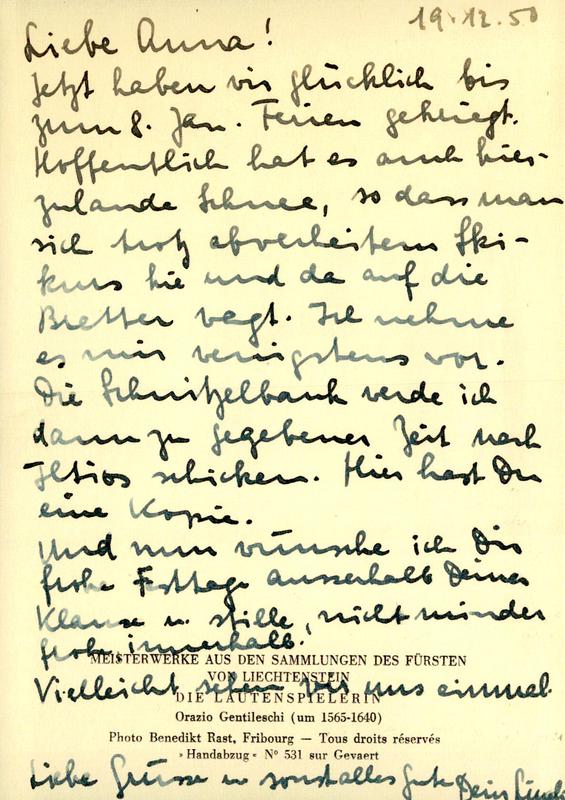 19.12.50
Liebe Anna!
Jetzt haben wir glücklich bis
zum 8. Jan. Ferien gekriegt.
Hoffentlich hat es auch hier-
zulande Schnee, so dass man
sich trotz abverheitem Ski-
kurs hie und da auf die
Bretter wagt. Ich nehme
es mir wenigstens vor.
Die Schnitzelbank werde ich
dann zu gegebener Zeit nach
Iltios schicken. Hier hast Du
eine Kopie.
Und nun wünsche ich Dir
frohe Festtage ausserhalb Deiner
Klause u. stille, nicht minder
frohe innerhalb.
MEISTERWERKE AUS DEN SAMMLUNGEN DES FÜRSTEN
VON LIECHTENSTEIN
Vielleicht sehen wir uns einmal.
DIE LAUTENSPIELERIN
Orazio Gentileschi (um 1565-1640)
Photo Benedikt Rast, Fribourg — Tous droits réservés
»Handabzug« Nº 531 sur Gevaert
Liebe Grüsse u sonst alles Gute Dein